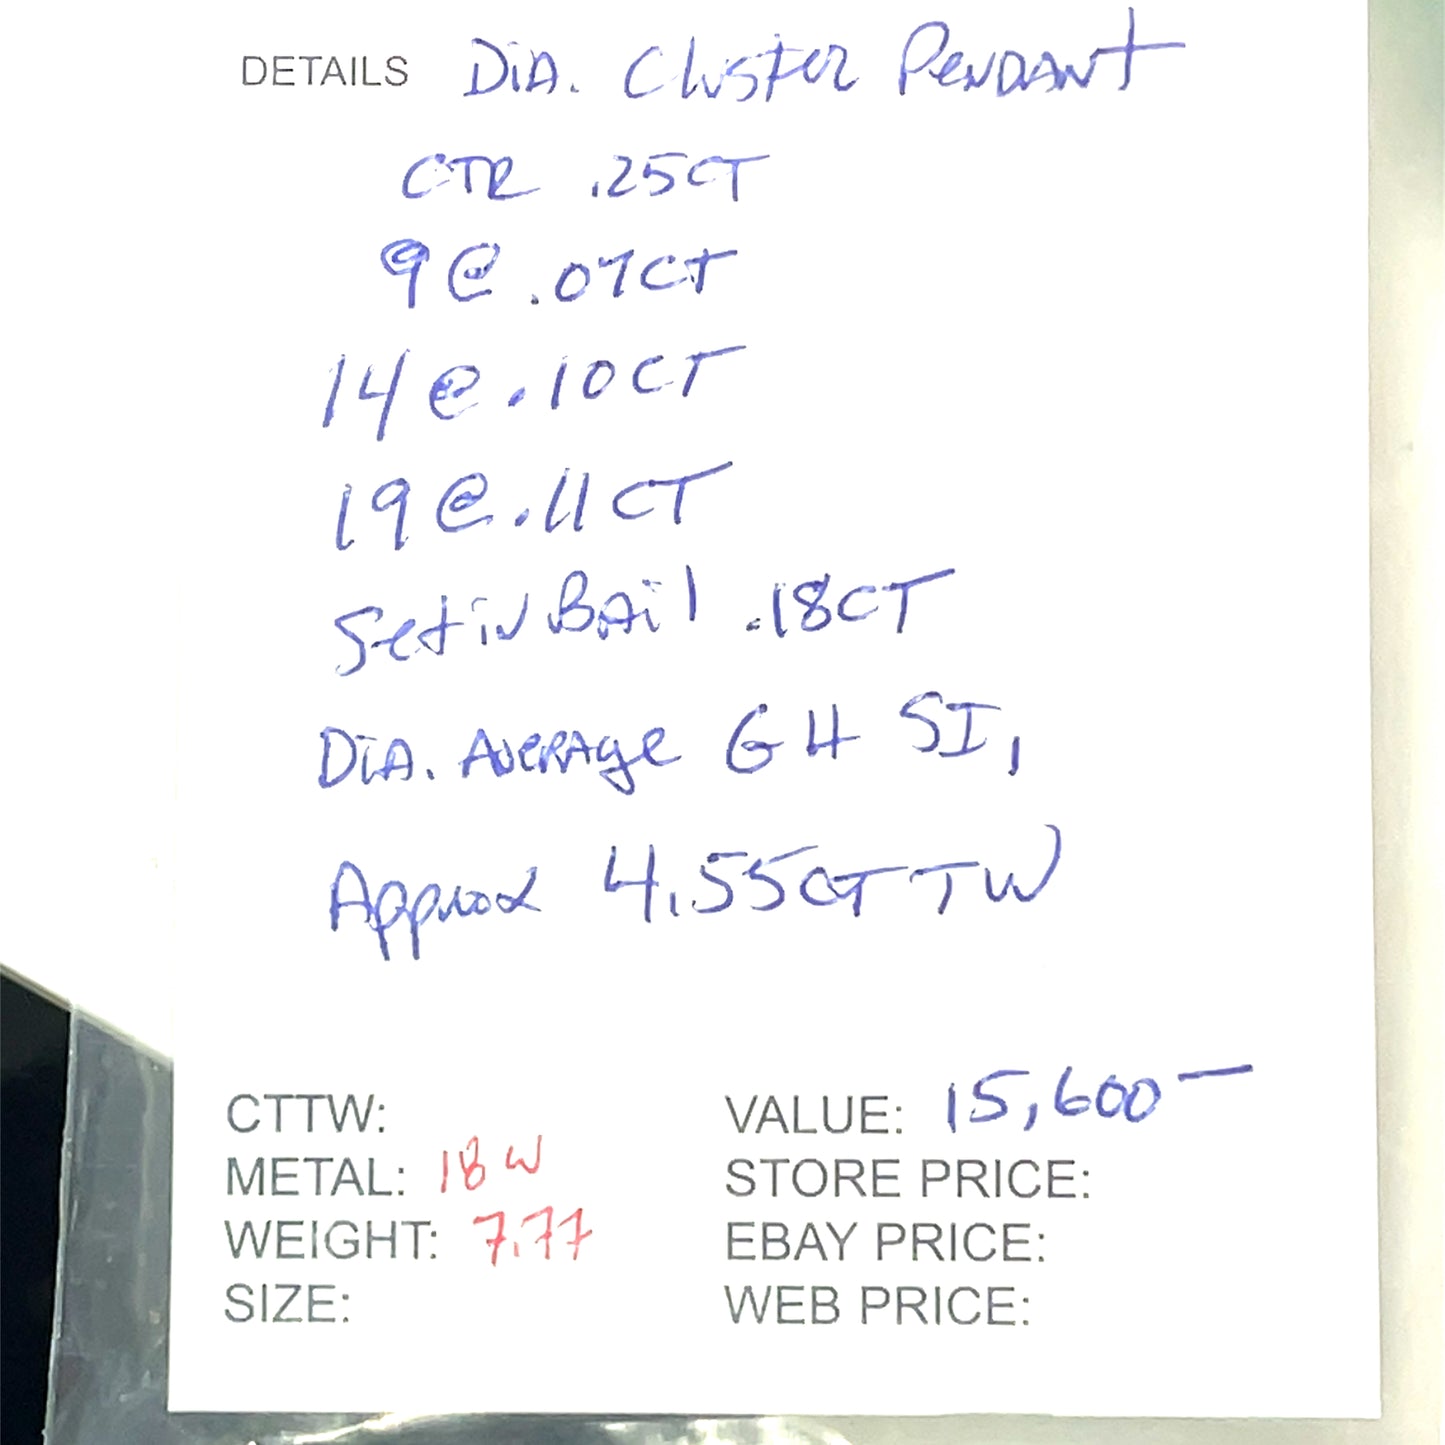 DETAILS DiA. Cluster PendANT
CTR .25CT
9 @ .07CT
14 @ .10CT
19 @ .11CT
Set in BAil .18CT
DiA. AveRAge G H SI1
Approx 4.55CT TW
CTTW:
METAL: 18 W
WEIGHT: 7.77
SIZE:
VALUE: 15,600 —
STORE PRICE:
EBAY PRICE:
WEB PRICE: